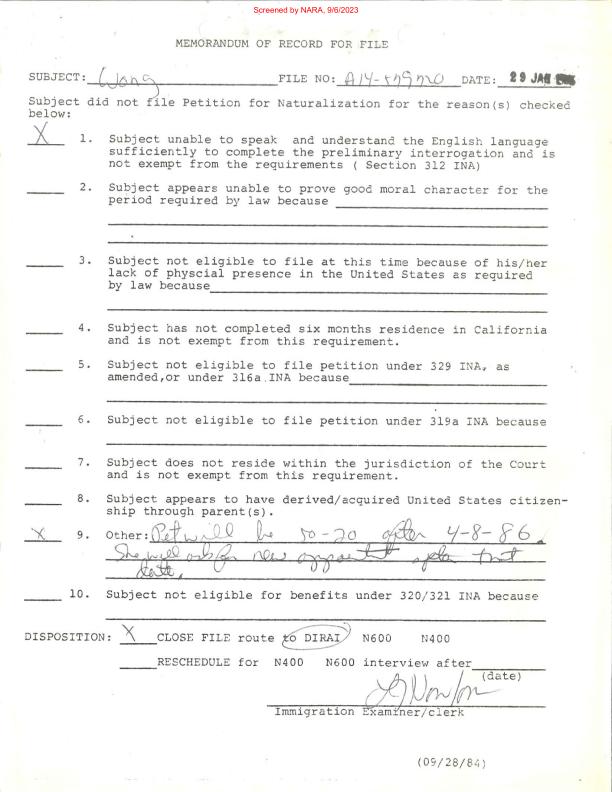 Screened by NARA, 9/6/2023
MEMORANDUM OF RECORD FOR FILE
SUBJECT: Wong FILE NO: DATE: 29 JAN
Subject did not file Petition for Naturalization for the reason(s) checked
below:
X 1. Subject unable to speak and understand the English language
sufficiently to complete the preliminary interrogation and is
not exempt from the requirements ( Section 312 INA)
2. Subject appears unable to prove good moral character for the
period required by law because
3. Subject not eligible to file at this time because of his/her
lack of physcial presence in the United States as required
by law because
4. Subject has not completed six months residence in California
and is not exempt from this requirement.
5. Subject not eligible to file petition under 329 INA, as
amended,or under 316a INA because
6. Subject not eligible to file petition under 319a INA because
7. Subject does not reside within the jurisdiction of the Court
and is not exempt from this requirement.
8. Subject appears to have derived/acquired United States citizen-
ship through parent(s).
X 9. Other: Pet will be 50-20 after 4-8-86.
She will ask for new after that
date.
10. Subject not eligible for benefits under 320/321 INA because
DISPOSITION: X CLOSE FILE route to DIRAI N600 N400
RESCHEDULE for N400 N600 interview after
(date)
Immigration Examiner/clerk
(09/28/84)